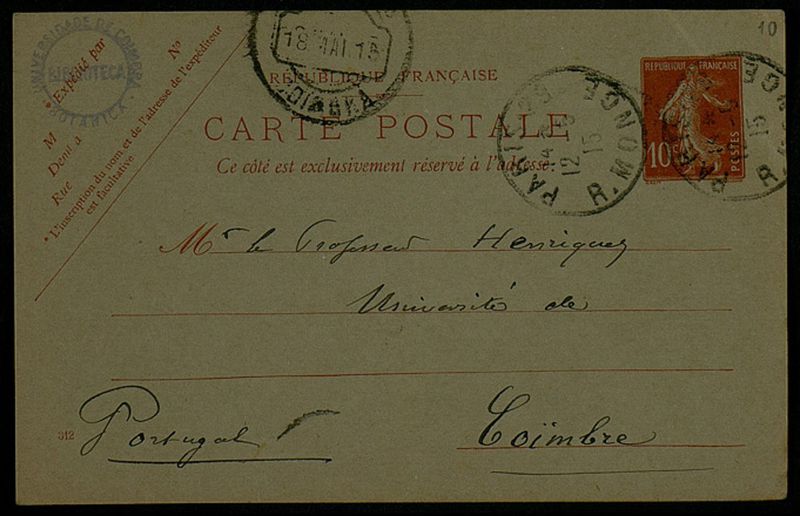 10
UNIVERSIDADE DE COIMBRA
BIBLIOTECA
BOTANICA
* Expédié par
No
M
Demt à
Rue
* L'inscription du nom et de l'adresse de l'expéditeur
est facultative
18 MAI 15
COIMBRA
RÉPUBLIQUE FRANÇAISE
CARTE POSTALE
Ce côté est exclusivement réservé à l'adresse.
PARIS
12 -5
15
R. MONGE
RÉPUBLIQUE FRANÇAISE
10c
POSTES
PARIS
15
R. MONGE
Mr le Professeur Henriquez
Université de
Coïmbre
Portugal
312